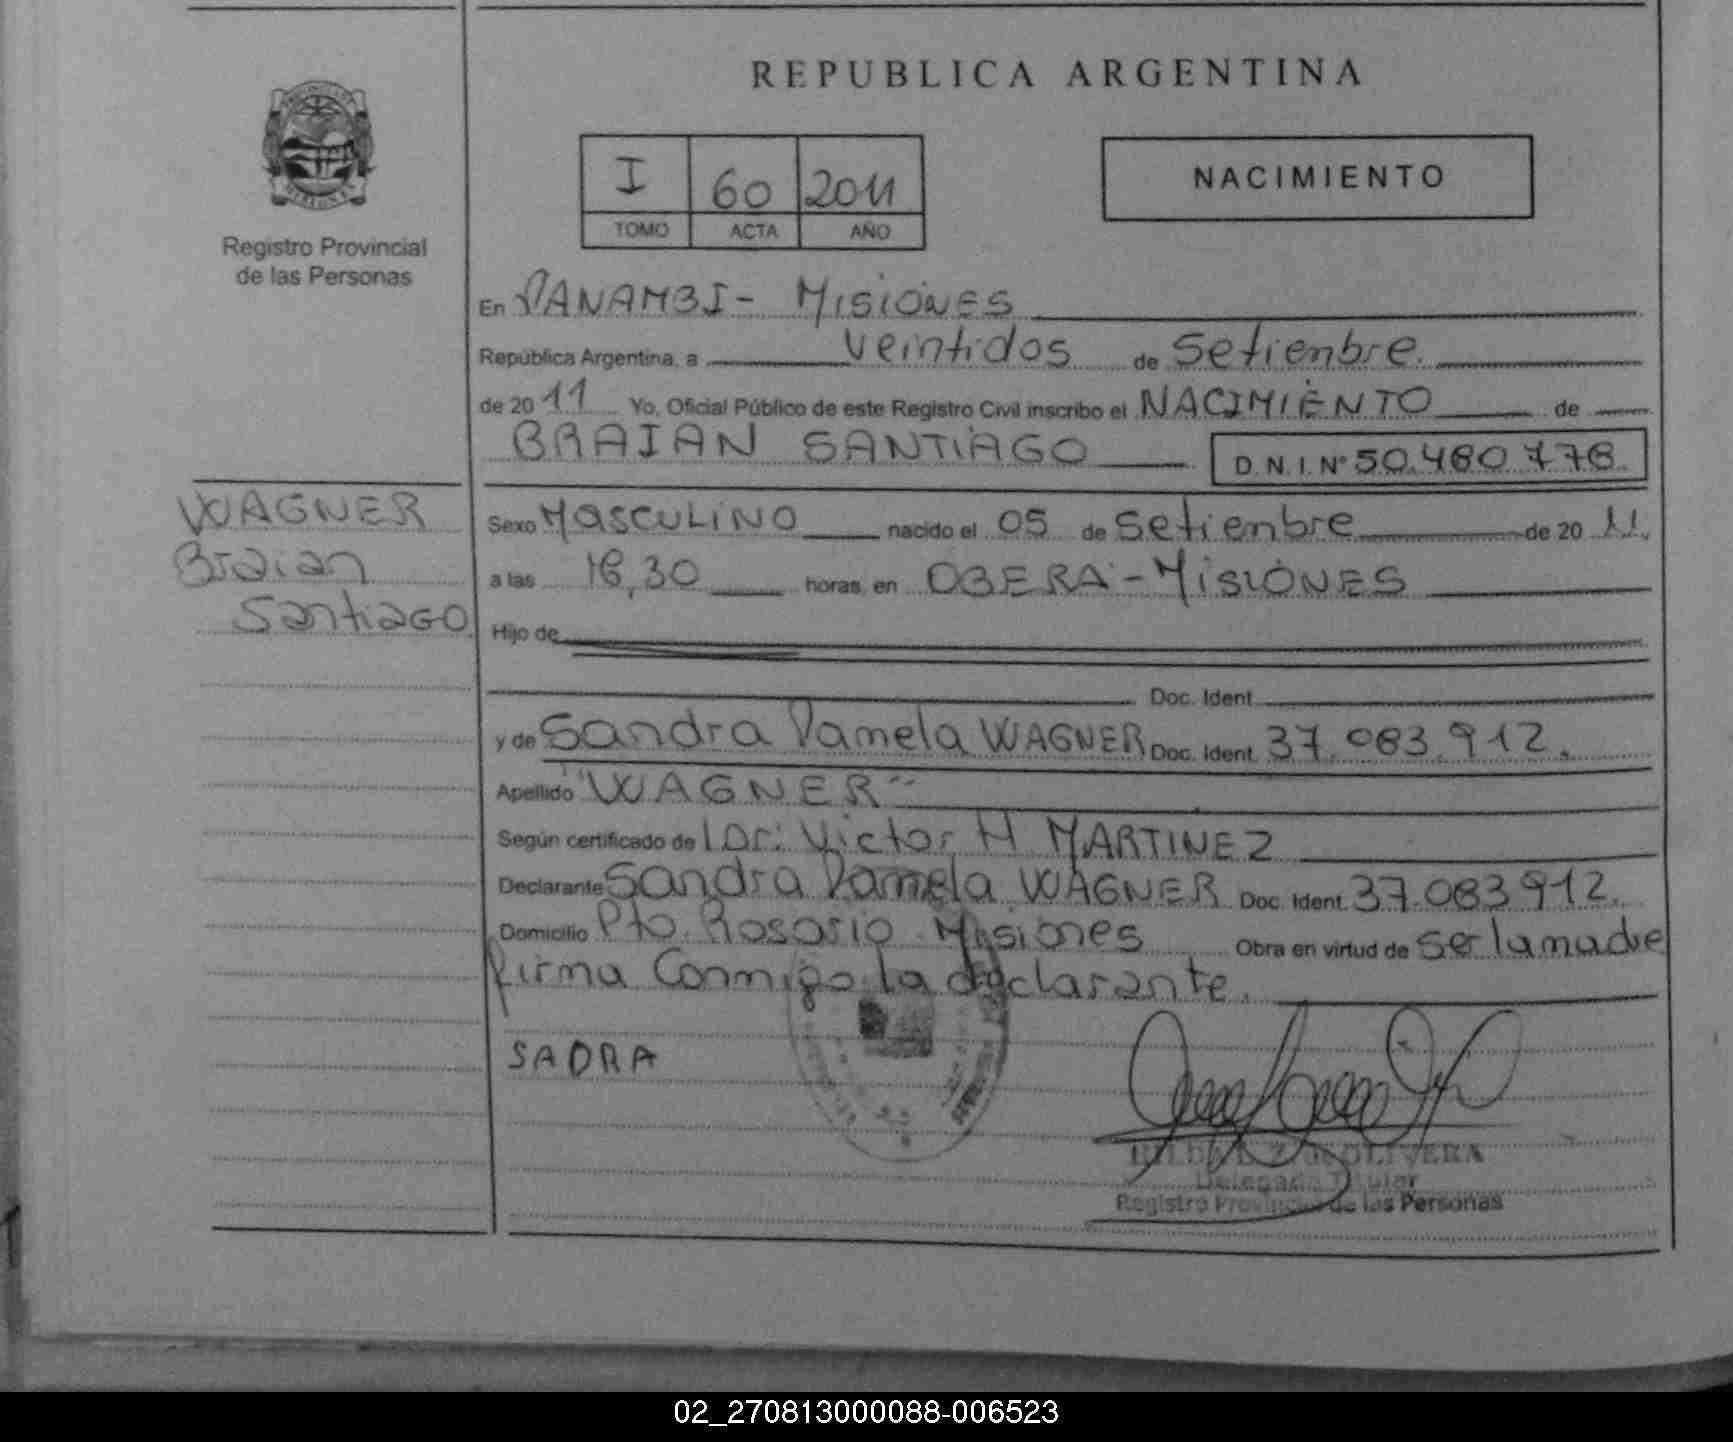 REPUBLICA ARGENTINA
I 60 2011
TOMO ACTA AÑO
NACIMIENTO
Registro Provincial
de las Personas
En PANAMBI - MISIONES
República Argentina, a veintidos de Setienbre.
de 20 11 Yo, Oficial Público de este Registro Civil inscribo el NACIMIENTO de
BRAIAN SANTIAGO D.N.I. Nº 50.480.778.
WAGNER
Braian
Santiago
Sexo MASCULINO nacido el 05 de Setienbre de 20 11,
a las 18,30 horas, en OBERA - MISIONES
Hijo de
Doc. Ident.
y de Sandra Pamela WAGNER Doc. Ident. 37.083.912.
Apellido "WAGNER"
Según certificado de Dr: Victor H MARTINEZ
Declarante Sandra Pamela WAGNER Doc. Ident. 37.083.912.
Domicilio Pto. Rosario Misiones Obra en virtud de ser la madre
firma Conmigo la declarante.
SADRA
OLIVERA
Delegada Titular
Registro Provincial de las Personas
02_270813000088-006523